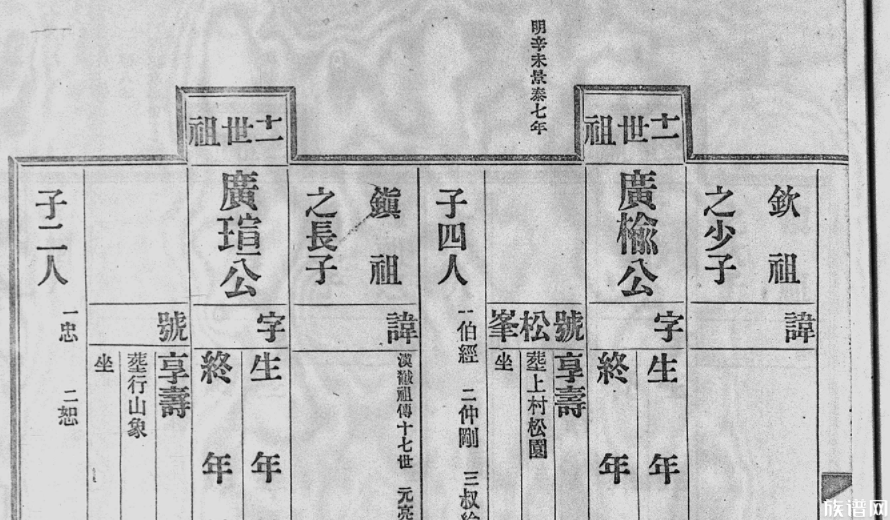 明辛未景泰七年
十二世祖
欽祖
之少子
諱
廣榆公
字
生 年
終 年
號松峯
享壽
塟上村松園
坐
子四人
一伯經 二仲剛 三叔
漢瀻祖傳十七世 元亮
十二世祖
鎭祖
之長子
諱
廣瑄公
字
生 年
終 年
號
享壽
塟行山象
坐
子二人
一忠 二恕
族谱网